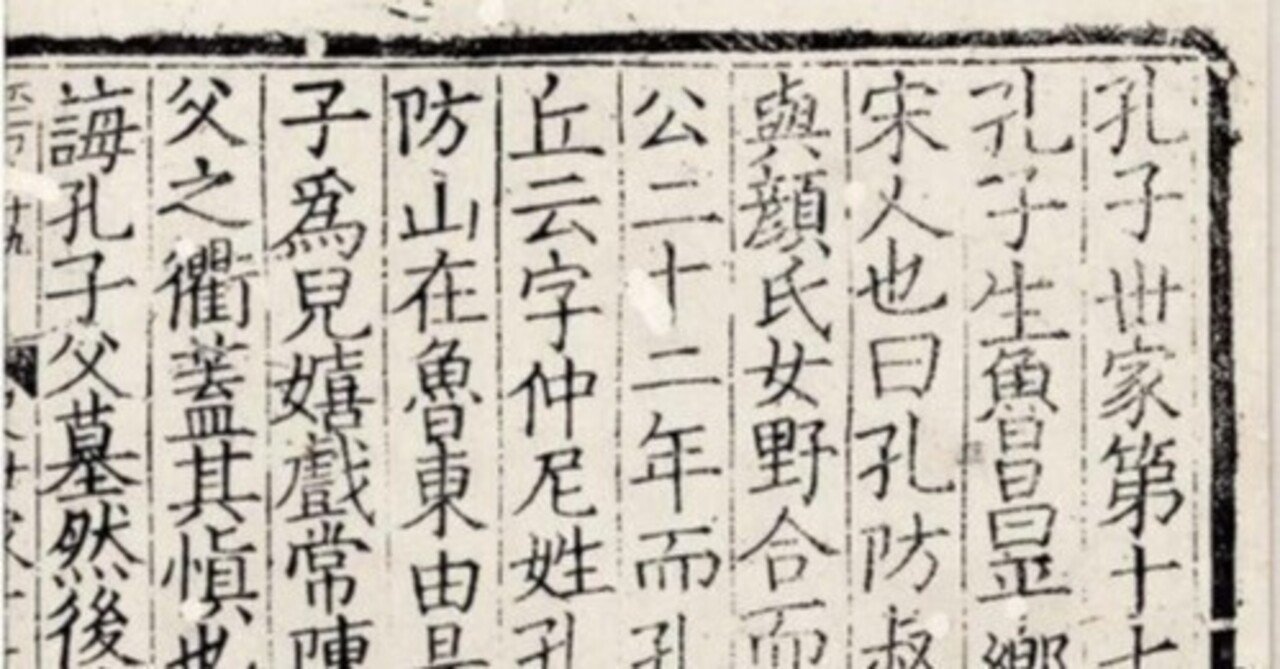 孔子世家第十七
孔子生魯昌平鄉
宋人也曰孔防叔
與顏氏女野合而
公二十二年而孔
丘云字仲尼姓孔
防山在魯東由是
子爲兒嬉戲常陳
父之衢蓋其愼也
誨孔子父墓然後